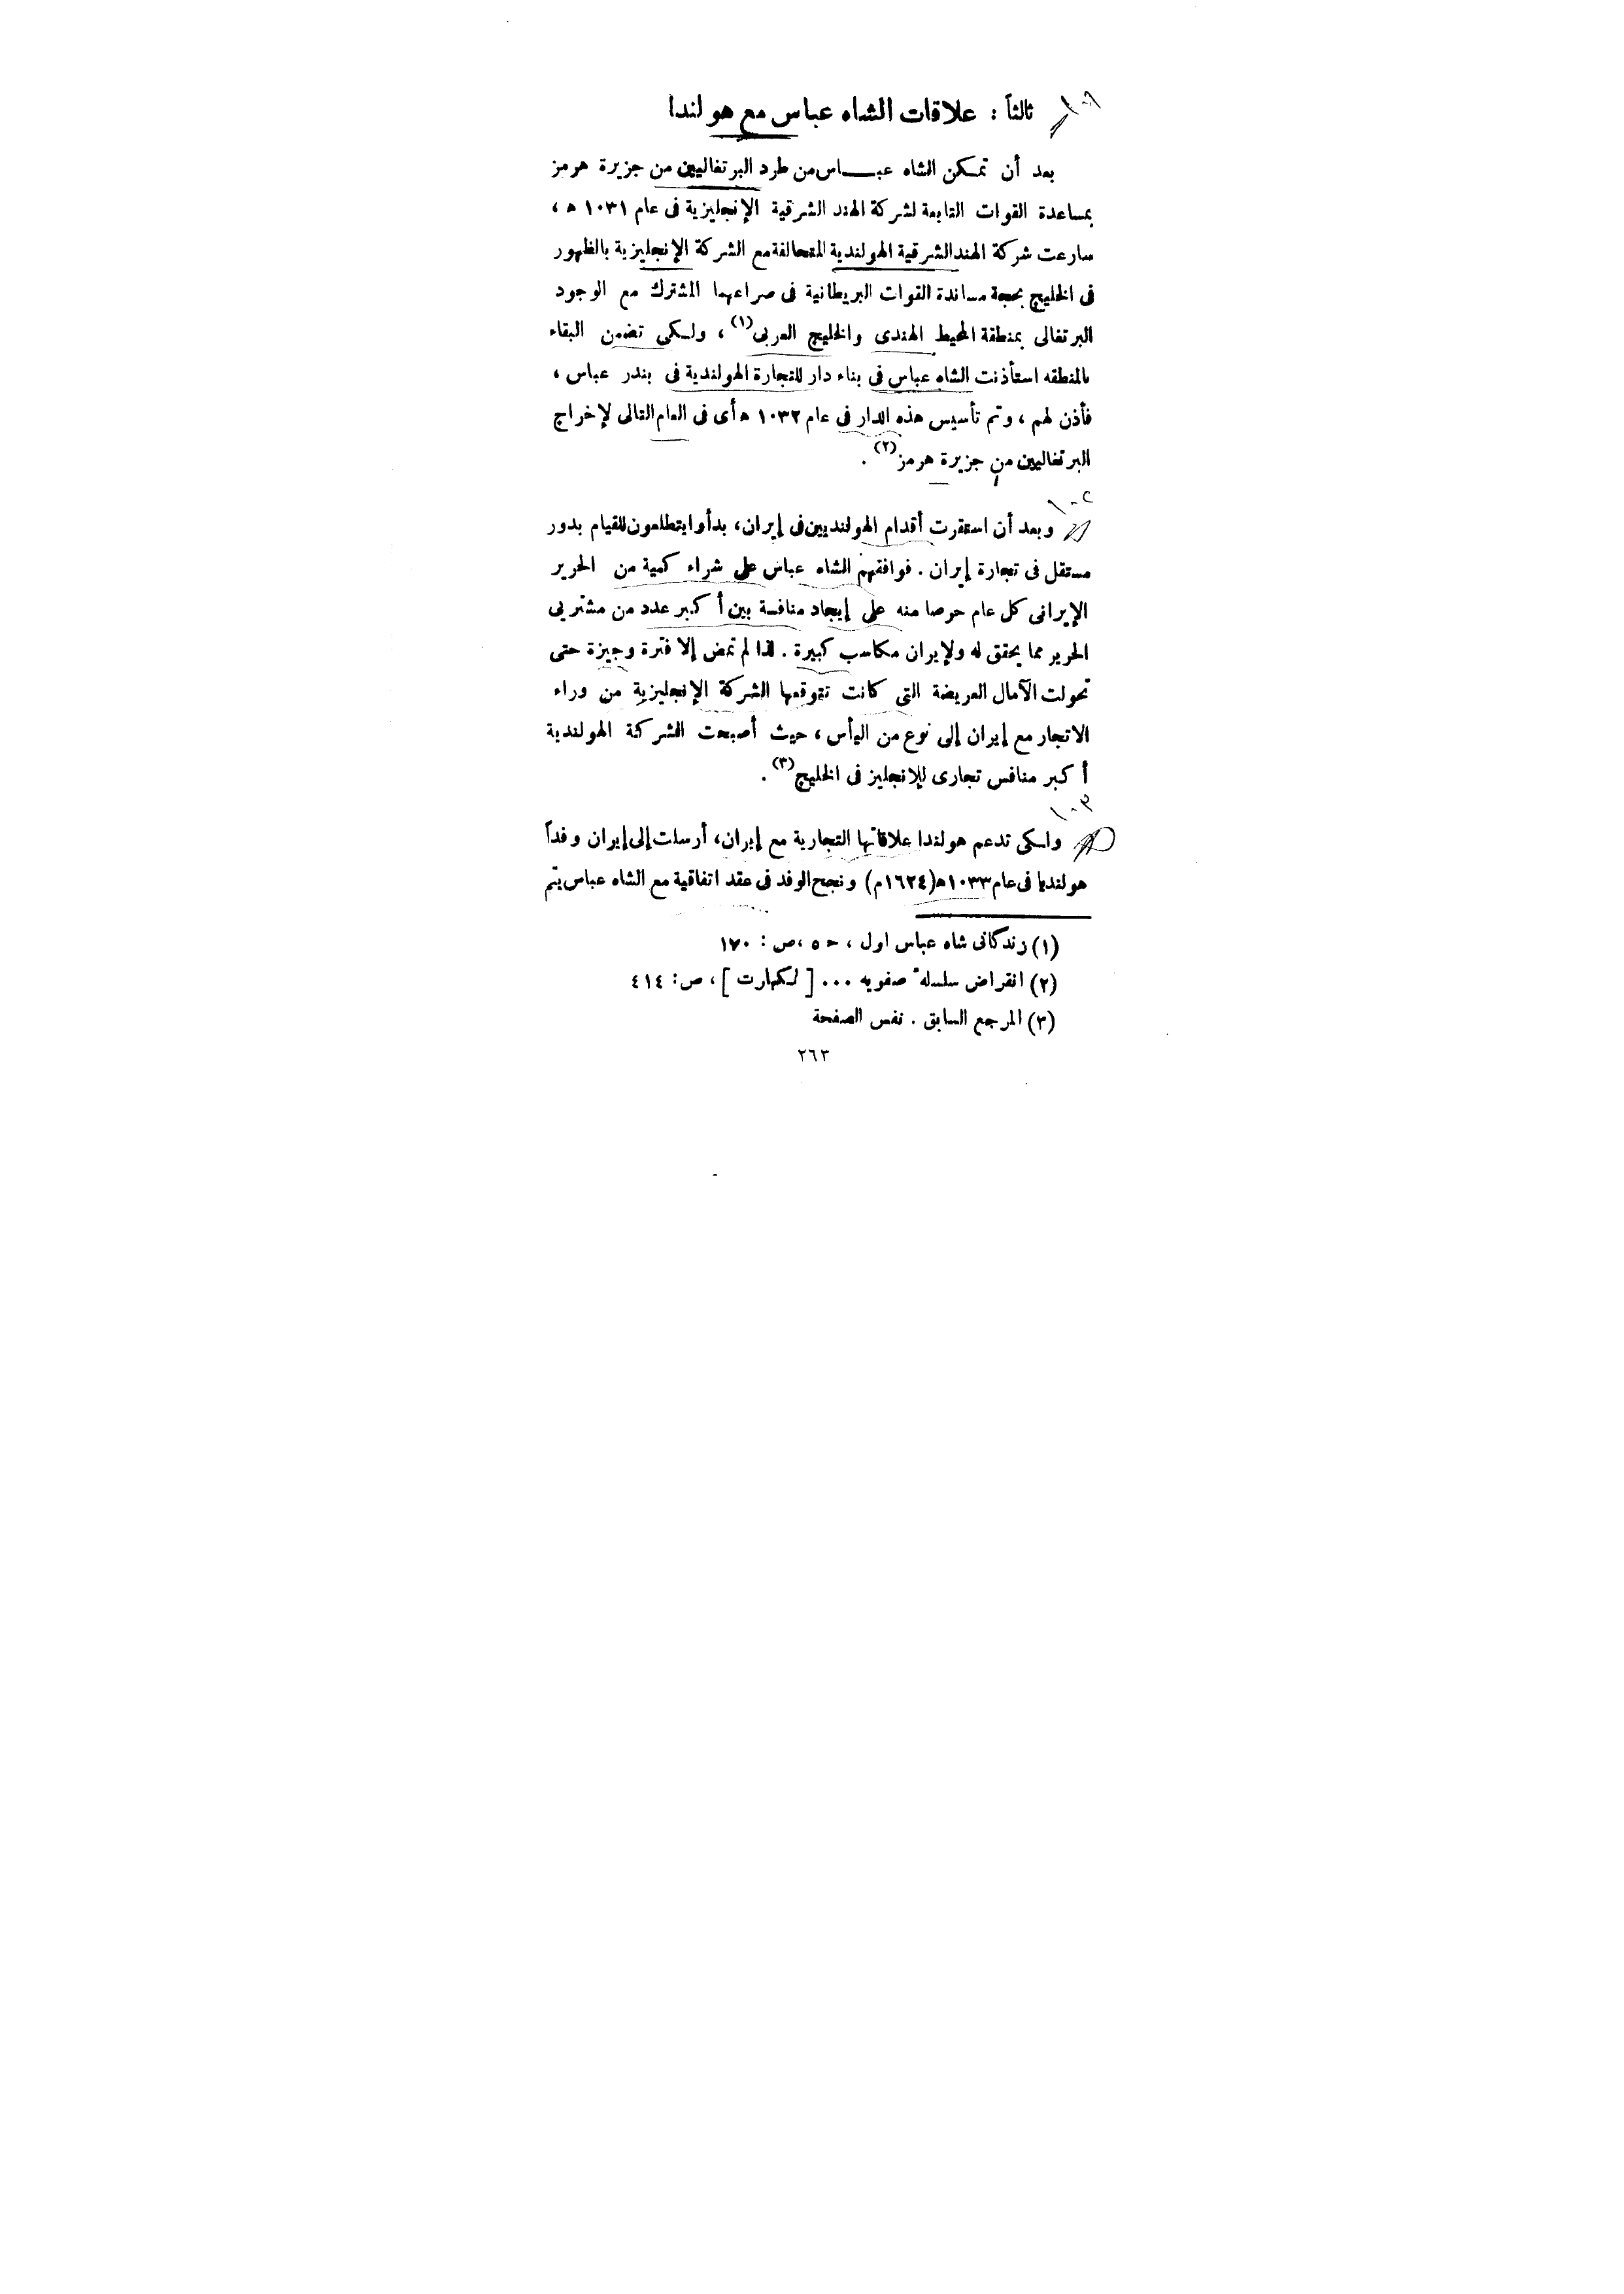 ثالثاً : علاقات الشاه عباس مع هولندا
بعد أن تمكن الشاه عباس من طرد البرتغاليين من جزيرة هرمز
بمساعدة القوات التابعة لشركة الهند الشرقية الإنجليزية فى عام ١٠٣١ ه ،
سارعت شركة الهند الشرقية الهولندية المتحالفة مع الشركة الإنجليزية بالظهور
فى الخليج بحجة مساندة القوات البريطانية فى صراعهما المشترك مع الوجود
البرتغالى بمنطقة المحيط الهندى والخليج العربى(١) ، ولكى تضمن البقاء
بالمنطقه استأذنت الشاه عباس فى بناء دار للتجارة الهولندية فى بندر عباس ،
فأذن لهم ، وتم تأسيس هذه الدار فى عام ١٠٣٢ ه أى فى العام التالى لإخراج
البرتغاليين من جزيرة هرمز(٢) .
١٠٢
وبعد أن استقرت أقدام الهولنديين فى إيران، بدأوا يتطلعون للقيام بدور
مستقل فى تجارة إيران . فوافقهم الشاه عباس على شراء كمية من الحرير
الإيرانى كل عام حرصا منه على إيجاد منافسة بين أكبر عدد من مشتريى
الحرير مما يحقق له ولإيران مكاسب كبيرة . لذا لم تمض إلا فترة وجيزة حتى
تحولت الآمال العريضة التى كانت تتوقعها الشركة الإنجليزية من وراء
الاتجار مع إيران إلى نوع من اليأس ، حيث أصبحت الشركة الهولندية
أكبر منافس تجارى للإنجليز فى الخليج(٣) .
١٠٣
ولكى تدعم هولندا علاقاتها التجارية مع إيران، أرسلت إلى إيران وفداً
هولنديا فى عام ١٠٣٣ه (١٦٢٤م) ونجح الوفد فى عقد اتفاقية مع الشاه عباس يتم
(١) زندكانى شاه عباس اول ، ح ٥ ،ص : ١٧٠
(٢) انقراض سلسلهٔ صفويه ... [ لكهارت ] ، ص : ٤١٤
(٣) المرجع السابق . نفس الصفحة
٢٦٣